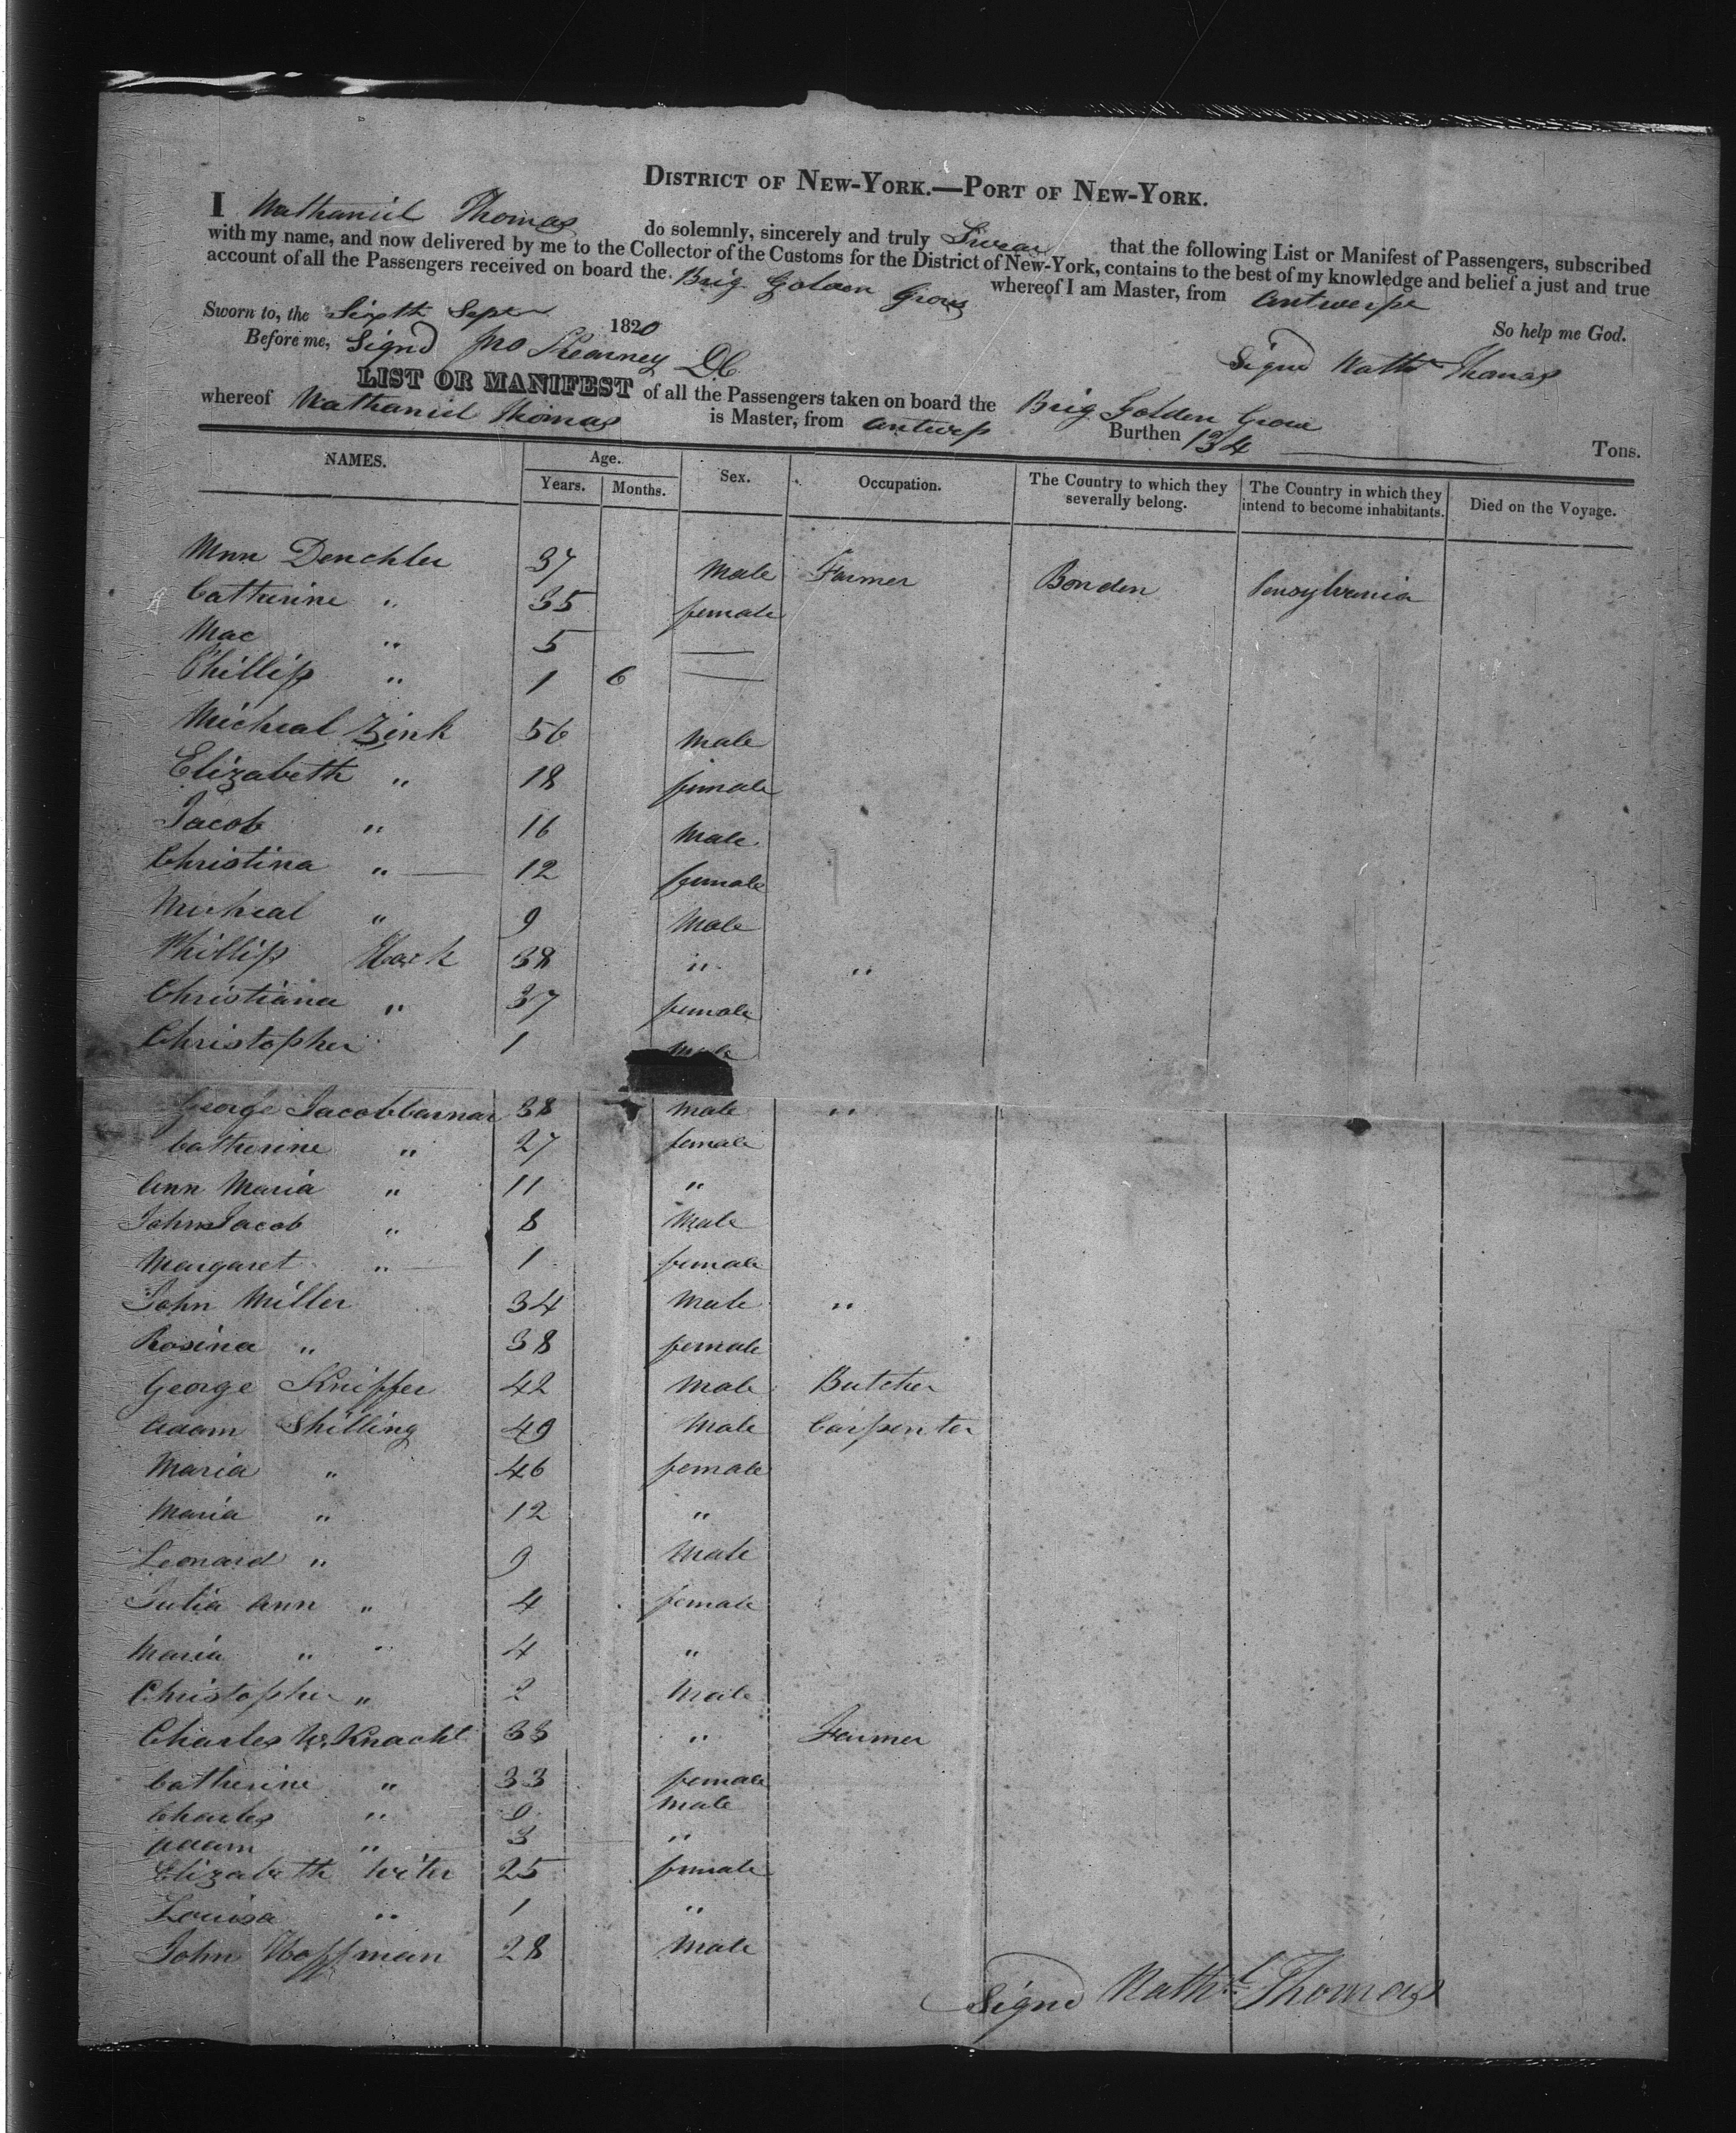 DISTRICT OF NEW-YORK.—PORT OF NEW-YORK.
I Nathaniel Thomas do solemnly, sincerely and truly Swear that the following List or Manifest of Passengers, subscribed
with my name, and now delivered by me to the Collector of the Customs for the District of New-York, contains to the best of my knowledge and belief a just and true
account of all the Passengers received on board the Brig Golden Grove whereof I am Master, from Antwerp
Sworn to, the Sixth Sepr 1820 So help me God.
Before me, Signd Jno Kearney DC Signd Nathl Thomas
LIST OR MANIFEST of all the Passengers taken on board the Brig Golden Grove
whereof Nathaniel Thomas is Master, from Antwerp Burthen 134 Tons.
NAMES. Age. Years. Months. Sex. Occupation. The Country to which they severally belong. The Country in which they intend to become inhabitants. Died on the Voyage.
Denchler 37 Male Farmer Bonden Pensylvania
Catherine " 35 female
Mac " 5 —
Phillip " 1 6 —
Micheal Zink 56 Male
Elizabeth " 18 female
Jacob " 16 Male
Christina " — 12 female
Micheal " 9 Male
Phillip Hack 38 " "
Christiana " 37 female
Christopher 1 Male
George Jacob 38 Male "
Catherine " 27 female
Ann Maria " 11 "
John Jacob " 8 Male
Margaret " 1 female
John Miller 34 Male "
Rosina " 38 female
George Kniffer 42 Male Butcher
Adam Shilling 49 Male Carpenter
Maria " 46 female
Maria " 12 "
Leonard " 9 Male
Julia Ann " 4 female
Maria " 4 "
Christopher " 2 Male
Charles W. Knacht 33 " Farmer
Catherine " 33 female
Charles " 9 Male
Adam " 3 "
Elizabeth Witer 25 female
Louisa " 1 "
John Hoffman 28 Male
Signd Nathl Thomas